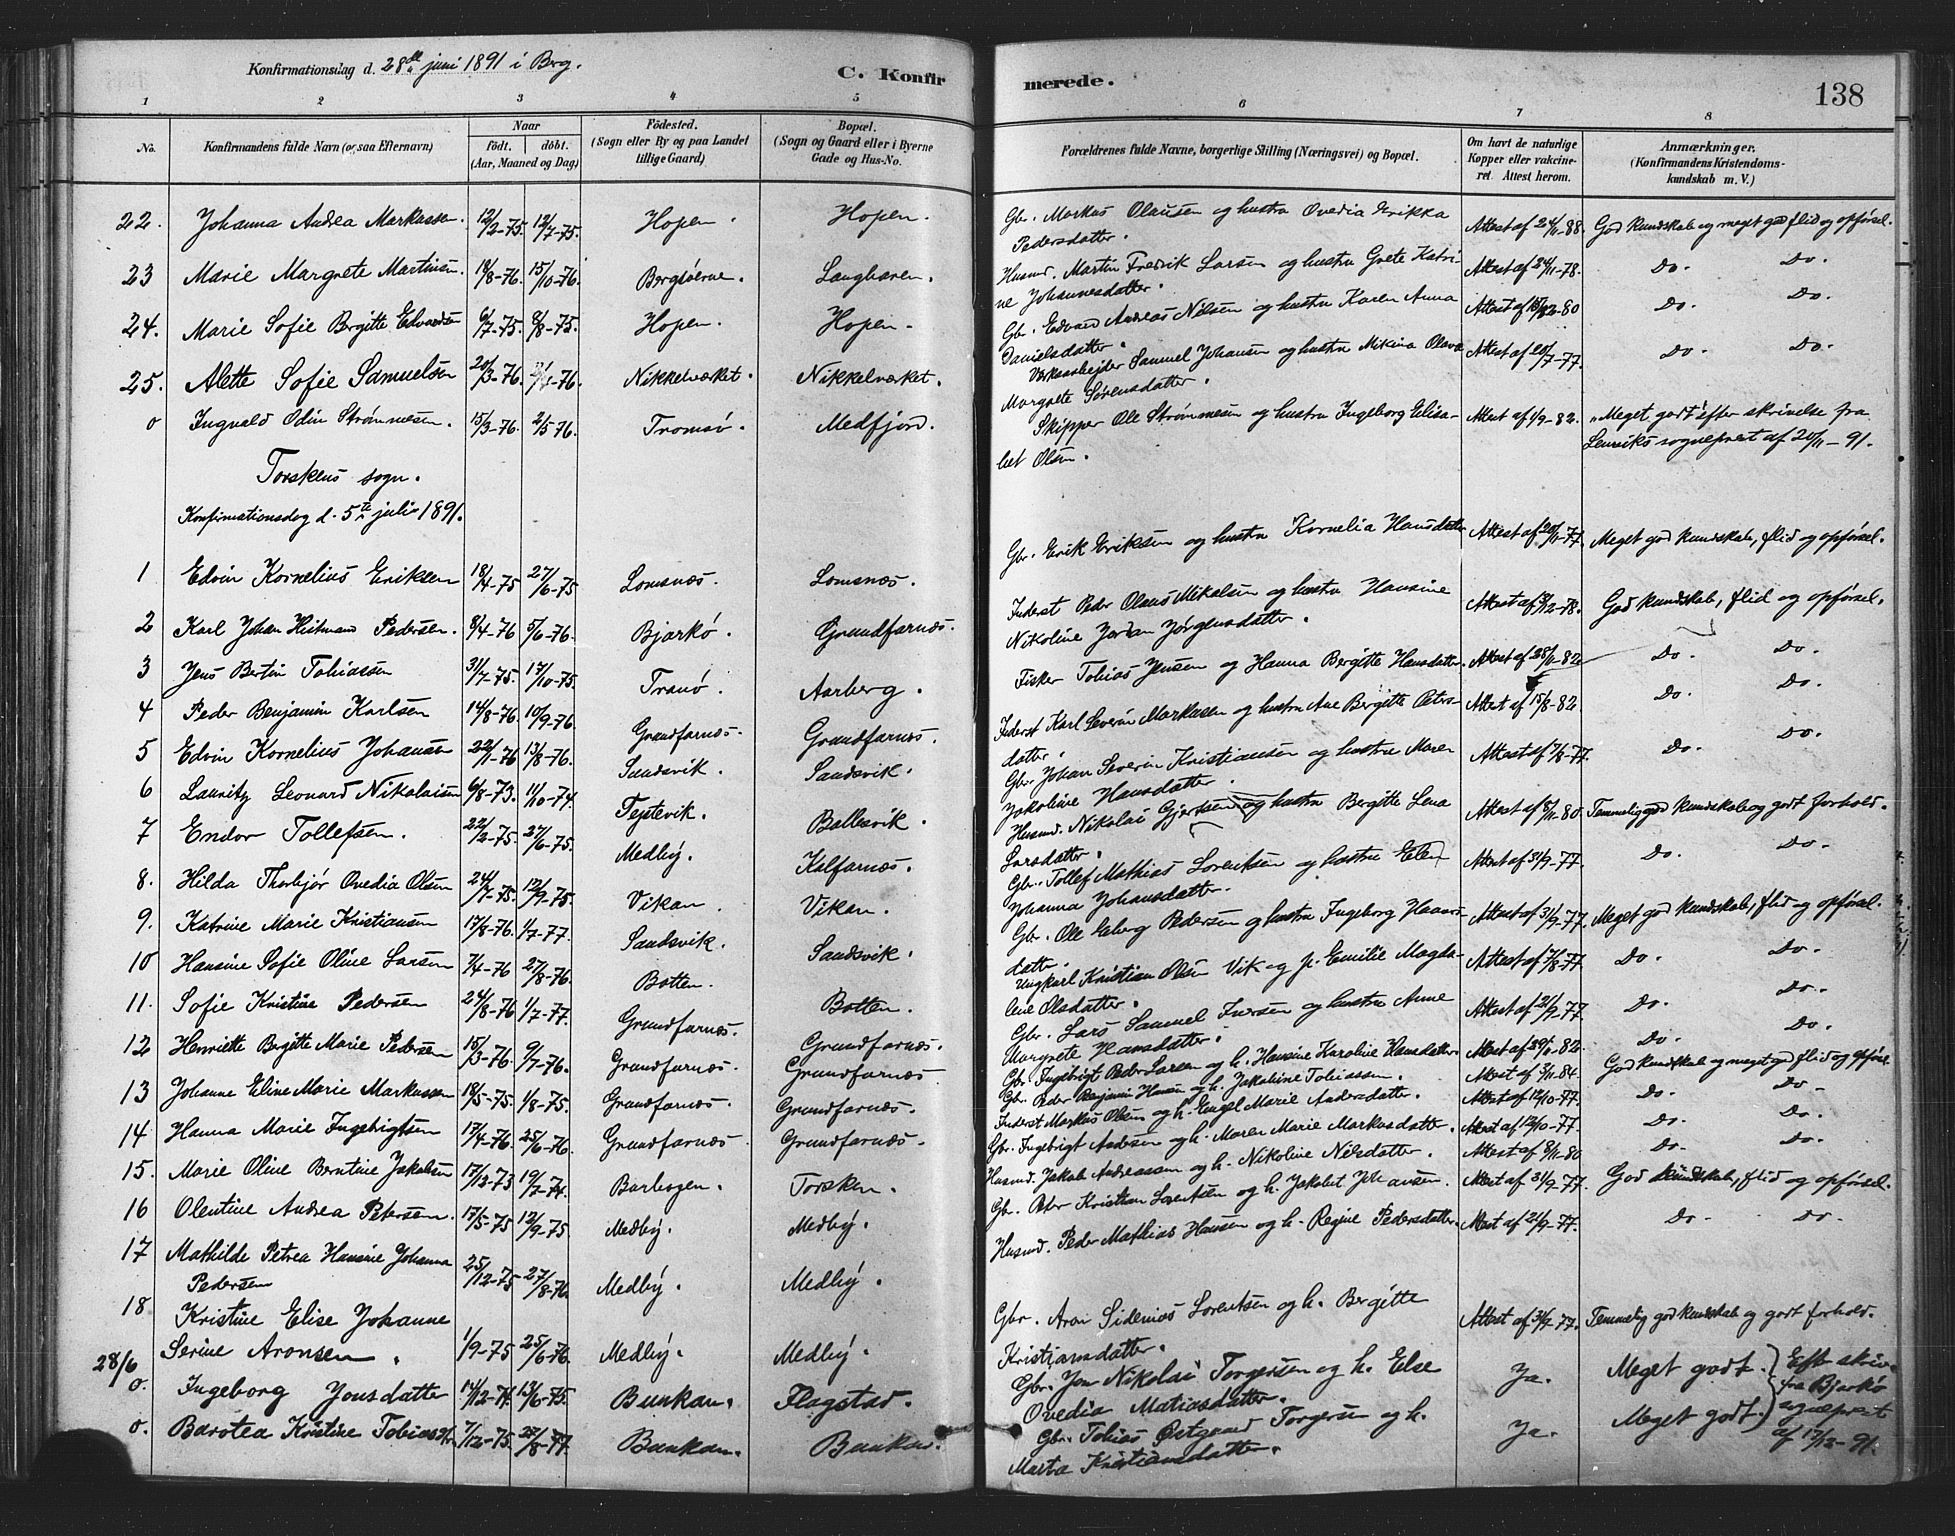 Konfirmationsdag d. 28de juni 1891 i Berg.
C. Konfirmerede.
138
1 2 3 4 5 6 7 8
No.
Konfirmandens fulde Navn (og saa Efternavn)
Naar
født. døbt.
(Aar, Maaned og Dag)
Fødested.
(Sogn eller By og paa Landet
tillige Gaard)
Bopæl.
(Sogn og Gaard eller i Byerne
Gade og Hus-No.
Forældrenes fulde Navne, borgerlige Stilling (Næringsvei) og Bopæl.
Om havt de naturlige
Kopper eller vakcine-
ret. Attest herom.
Anmærkninger.
(Konfirmandens Kristendoms-
kundskab m. V.)
22. Johanna Andrea Markussen. 12/2-75. 12/7-75. Hopen. Hopen. Gbr. Markus Olausen og hustru Ovedia Erikka Attest af 24/11-88. God kundskab og meget god flid og opførsel.
Pedersdatter.
23 Marie Margrete Martinsen 18/8-76. 15/10-76. Bergsøerne. Langhaven. Husmd. Martin Fredrik Larsen og hustru Grete Katri- Attest af 24/11-78. Do. Do.
ne Johannesdatter.
24. Marie Sofie Bergitte Edvardsen 6/7-75. 8/8-75. Hopen. Hopen. Gbr. Edvard Andreas Nilsen og hustru Karen Anna Attest af -80 Do. Do.
Danielsdatter.
25. Alette Sofie Samuelsen 20/3-76. -76. Nikkelværket. Nikkelværket. Værksarbejder Samuel Johansen og hustru Mikina Olava Attest af 20/7-77. Do. Do.
Margrete Sørensdatter.
o Ingvald Odin Strømmesen. 15/3-76. 2/5 76. Tromsø. Medfjord. Skipper Ole Strømmesen og hustru Ingeborg Elisa- Attest af 1/9-82. "Meget godt" efter skrivelse fra
bet Olsen. Lenviks sogneprest af 20/11-91.
Torskens sogn.
Konfirmationsdag d. 5te juli 1891.
1 Edvin Kornelius Eriksen 18/4-75 27/6-75 Lomsnæs. Lomsnæs. Gbr. Erik Eriksen og hustru Kornelia Hansdatter Attest af 20/11-77. Meget god kundskab, flid og opførsel.
2 Karl Johan Pedersen. 8/4-76 5/6-76. Bjarkø. Grundfarnæs. Inderst Peder Olaus Mikalsen og hustru Hansine Attest af -78. God kundskab, flid og opførsel.
Nikoline Jørgensdatter.
3 Jens Bertin Tobiassen 31/7-75. 17/10-75. Tranø. Aarberg. Fisker Tobias Jensen og Hanna Bergitte Hansdatter. Attest af 28/11-82 Do. Do.
4 Peder Benjamin Karlsen 14/8-76 10/9-76. Grundfarnæs. Grundfarnæs. Inderst Karl Severin Markussen og hustru Ane Bergitte Peters- Attest af 15/8-82 Do. Do.
datter.
5 Edvin Kornelius Johansen 22/1-76 13/8-76. Sandsvik. Sandsvik. Gbr. Johan Severin Kristiansen og hustru Maren Attest af 7/8-77. Do. Do.
Jakobine Hansdatter.
6 Lauritz Leonard Nikolaisen 6/8-73. 11/10-74. Tejstevik. Ballesvik. Husmd. Nikolai Gjertsen og hustru Bergitte Lena Attest af 8/11-80. Temmelig god kundskab og godt forhold.
Larsdatter.
7 Endor Tollefsen. 22/2-75. 27/6-75. Medby. Kalfarnæs. Gbr. Tollef Mathias Lorentsen og hustru Elen Attest af 31/9-77. Do. Do.
Johanna Johansdatter.
8. Hilda Thorbjør Ovedia Olsen 24/7-75. 12/9-75. Vikan. Vikan. Gbr. Ole Pedersen og hustru Ingeborg Attest af 31/9-77. Meget god kundskab, flid og opførsel.
datter.
9. Katrine Marie Kristiansen 17/8-76. 1/7-77. Sandsvik. Sandsvik. Ungkarl Kristian Olsen Vik og p. Emilie Magda- Attest af 7/8-77 Do. Do.
lene Olsdatter.
10 Hansine Sofie Oline Larsen 7/4-76 27/8-76. Botten. Botten. Gbr. Lars Samuel Iversen og hustru Anne Attest af 21/9-77. Do. Do.
Margrete Hansdatter.
11. Sofie Kristine Pedersen 24/8-76 1/7-77. Grundfarnæs. Grundfarnæs. Gbr. Ingebrigt Peder Larsen og h. Hansine Karoline Hansdatter. Attest af -82. Do. Do.
12 Henriette Bergitte Marie Pedersen 15/3-76. 9/7-76. Grundfarnæs. Grundfarnæs. Gbr. Peder Benjamin Hansen og h. Jakobine Tobiassen. Attest af 3/11-84. God kundskab og meget god flid og opførsel
13 Johanne Eline Marie Markussen 18/5-75. 1/8-75. Grundfarnæs. Grundfarnæs. Inderst Markus Olsen og h. Engel Marie Andersdatter. Attest af 12/10-77. Do. Do.
14 Hanna Marie Ingebrigtsen 17/4-76. 25/6-76. Grundfarnæs. Grundfarnæs. Gbr. Ingebrigt Andersen og h. Maren Marie Markusdatter. Attest af 12/10-77. Do. Do.
15. Marie Oline Berntine Jakobsen 17/12-73 19/7-74. Barbogen. Torsken. Husmd. Jakob Andreassen og h. Nikoline Nilsdatter. Attest af 8/11-80 Do. Do.
16 Olentine Andrea Petersen. 17/5-75 12/9-75 Medby. Medby. Gbr. Peter Kristian Lorentsen og h. Jakobet Johansen. Attest af 31/9-77. God kundskab, flid og opførsel.
17 Mathilde Petrea Hansine Johanna 25/12-75 27/8-76. Medby. Medby. Husmd. Peder Mathias Hansen og h. Regine Pedersdatter. Attest af 21/9-77. Do. Do.
Pedersen
18 Kristine Elise Johanne Gbr. Aron Sidenius Lorentsen og h. Bergitte Attest af 31/9-77. Temmelig god kundskab og godt forhold.
Serine Aronsen. 1/9-75 25/6-76. Medby. Medby. Kristiansdatter.
28/6
o. Ingeborg Jonsdatter 14/12-74. 13/6-75. Bunkan. Flagstad. Gbr. Jon Nikolai Torgersen og h. Else Ja. Meget godt. } Eft. skriv.
Ovedia Matiasdatter. fra Bjarkø
o. Barotea Kristine Tobiasdtr. 7/12-75. -77. Bunkan. Bunkan. Gbr. Tobias Østgaard Torgersen og h. Ja. Meget godt. } sogneprest
Marta Kristiansdatter. af 17/12-91.